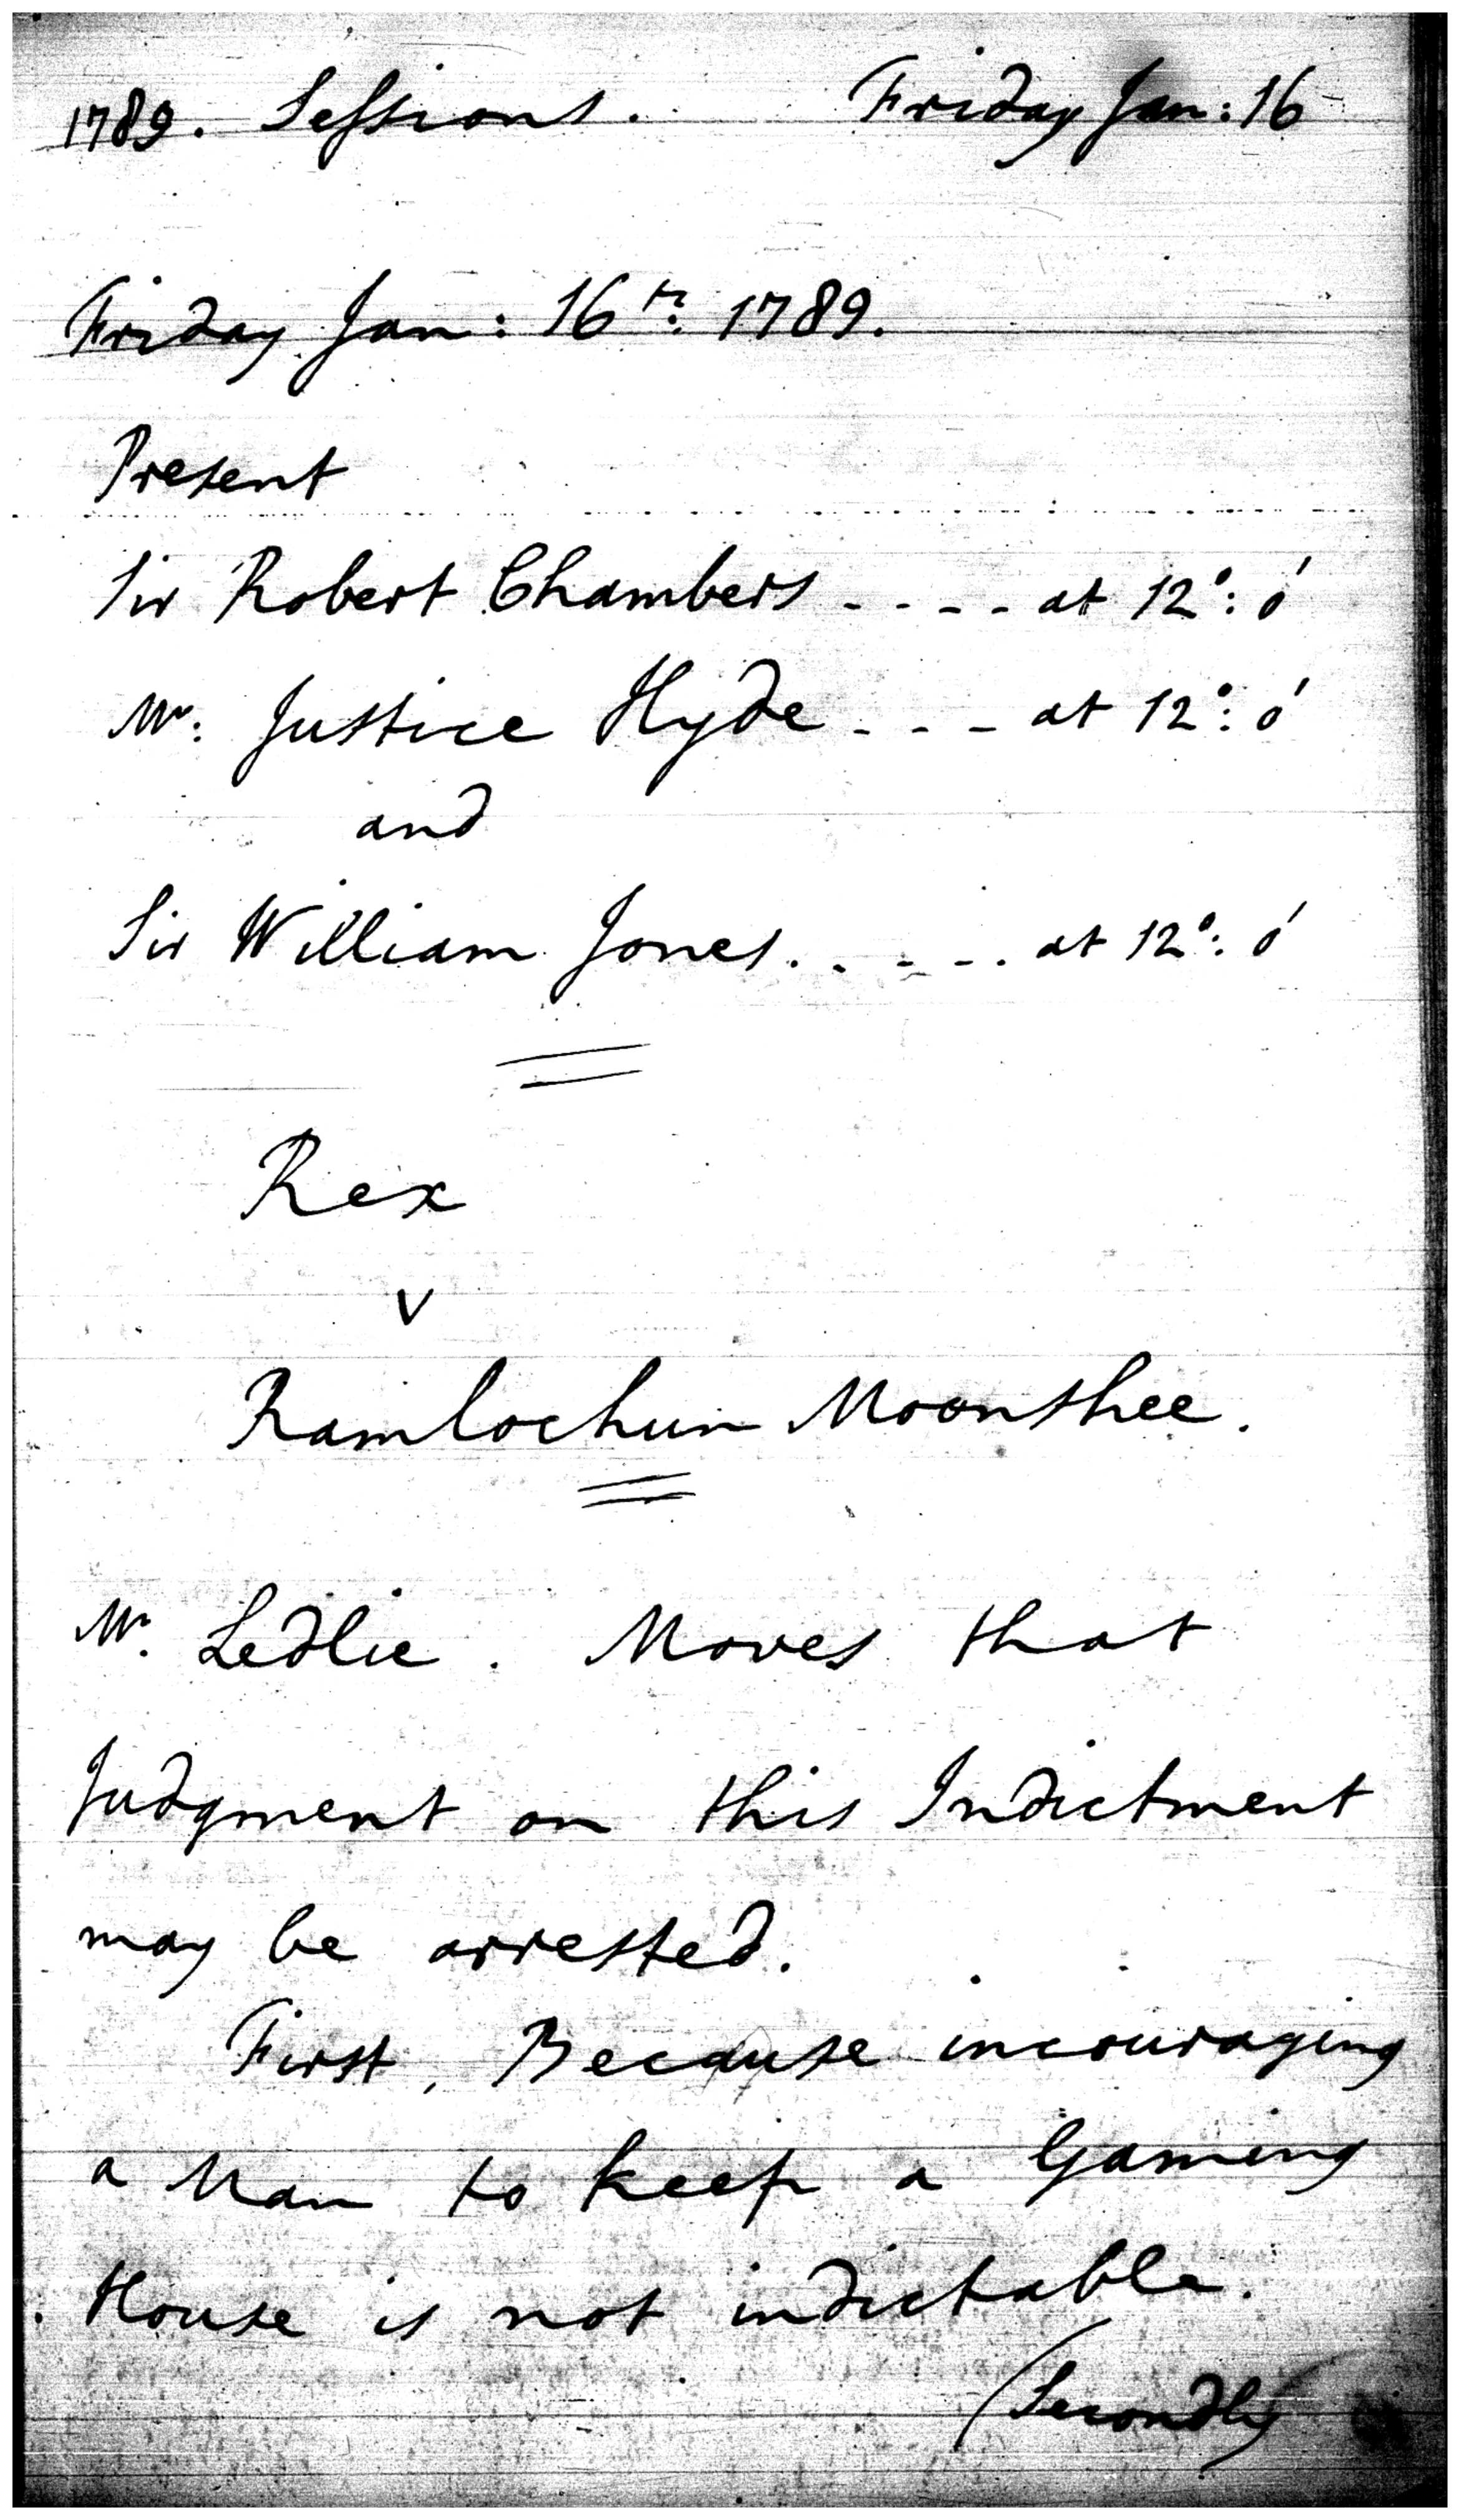 1789. Sessions. Friday Jan: 16
Friday Jan: 16th. 1789.
Present
Sir Robert Chambers - - - - at 12°: 0'
Mr: Justice Hyde - - - at 12°: 0'
and
Sir William Jones. - - - . at 12°: 0'
Rex
v
Ramlochun Moonshee.
Mr. Ledlie. Moves that
Judgment on this Indictment
may be arrested.
First, Because incouraging
a Man to keep a Gaming
House is not indictable.
(Secondly